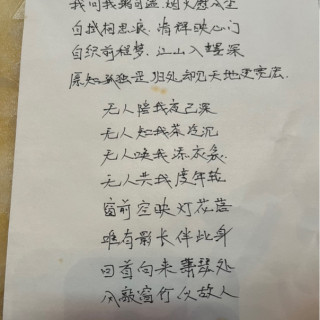 我问我
自拭相思泪 清辉映心门
自织前程梦 江山入梦深
原知孤独是归处却见天地更宽宏
无人陪我夜已深
无人知我茶凉沉
无人唤我添衣衾
无人共我度年轮
窗前空映灯花落
唯有影长伴此身
回首向来萧瑟处
风敲窗竹似故人